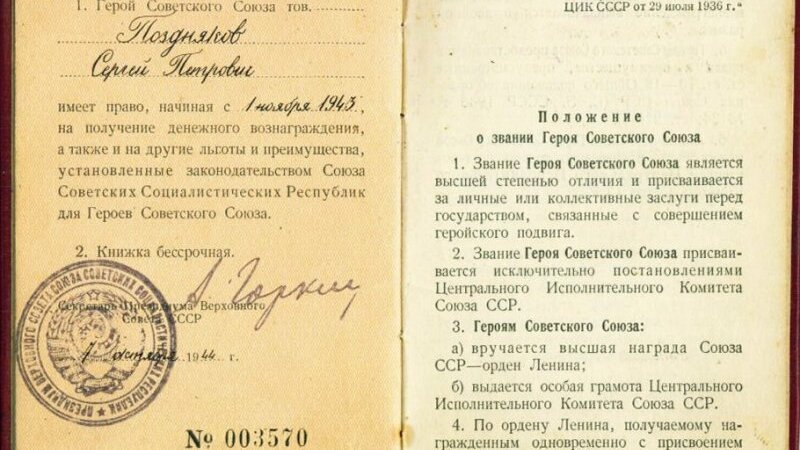 1. Герой Советского Союза тов.
Поздняков
Сергей Петрович
имеет право, начиная с 1 ноября 1943,
на получение денежного вознаграждения,
а также и на другие льготы и преимущества,
установленные законодательством Союза
Советских Социалистических Республик
для Героев Советского Союза.
2. Книжка бессрочная.
А. Горкин
Секретарь Президиума Верховного
Совета СССР
1944 г.
ПРЕЗИДИУМ ВЕРХОВНОГО СОВЕТА СОЮЗА СОВЕТСКИХ СОЦИАЛИСТИЧЕСКИХ РЕСПУБЛИК
№ 003570
ЦИК СССР от 29 июля 1936 г."
Положение
о звании Героя Советского Союза
1. Звание Героя Советского Союза является
высшей степенью отличия и присваивается
за личные или коллективные заслуги перед
государством, связанные с совершением
геройского подвига.
2. Звание Героя Советского Союза присваи-
вается исключительно постановлениями
Центрального Исполнительного Комитета
Союза ССР.
3. Героям Советского Союза:
а) вручается высшая награда Союза
ССР—орден Ленина;
б) выдается особая грамота Центрального
Исполнительного Комитета Союза ССР.
4. По ордену Ленина, получаемому на-
гражденным одновременно с присвоением